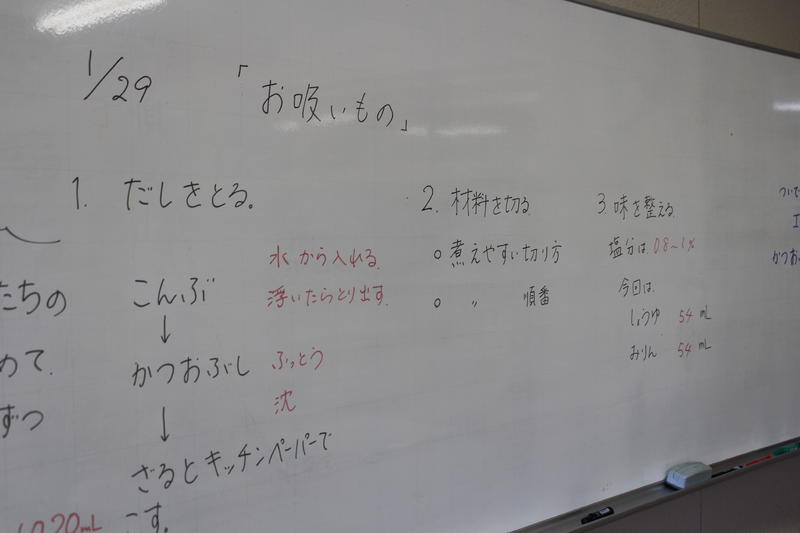 1/29 「お吸いもの」
1. だしをとる。
水から入れる.
浮いたらとり出す.
こんぶ
↓
かつおぶし ふっとう
沈
↓
ざるとキッチンペーパーで
こす。
2. 材料を切る
○ 煮えやすい切り方
○ 〃 順番
3. 味を整える
塩分は 0.8～1%
今回は.
しょうゆ 54 mL
みりん 54 mL
たちの
めて.
ずつ
20mL
ついで
かつお